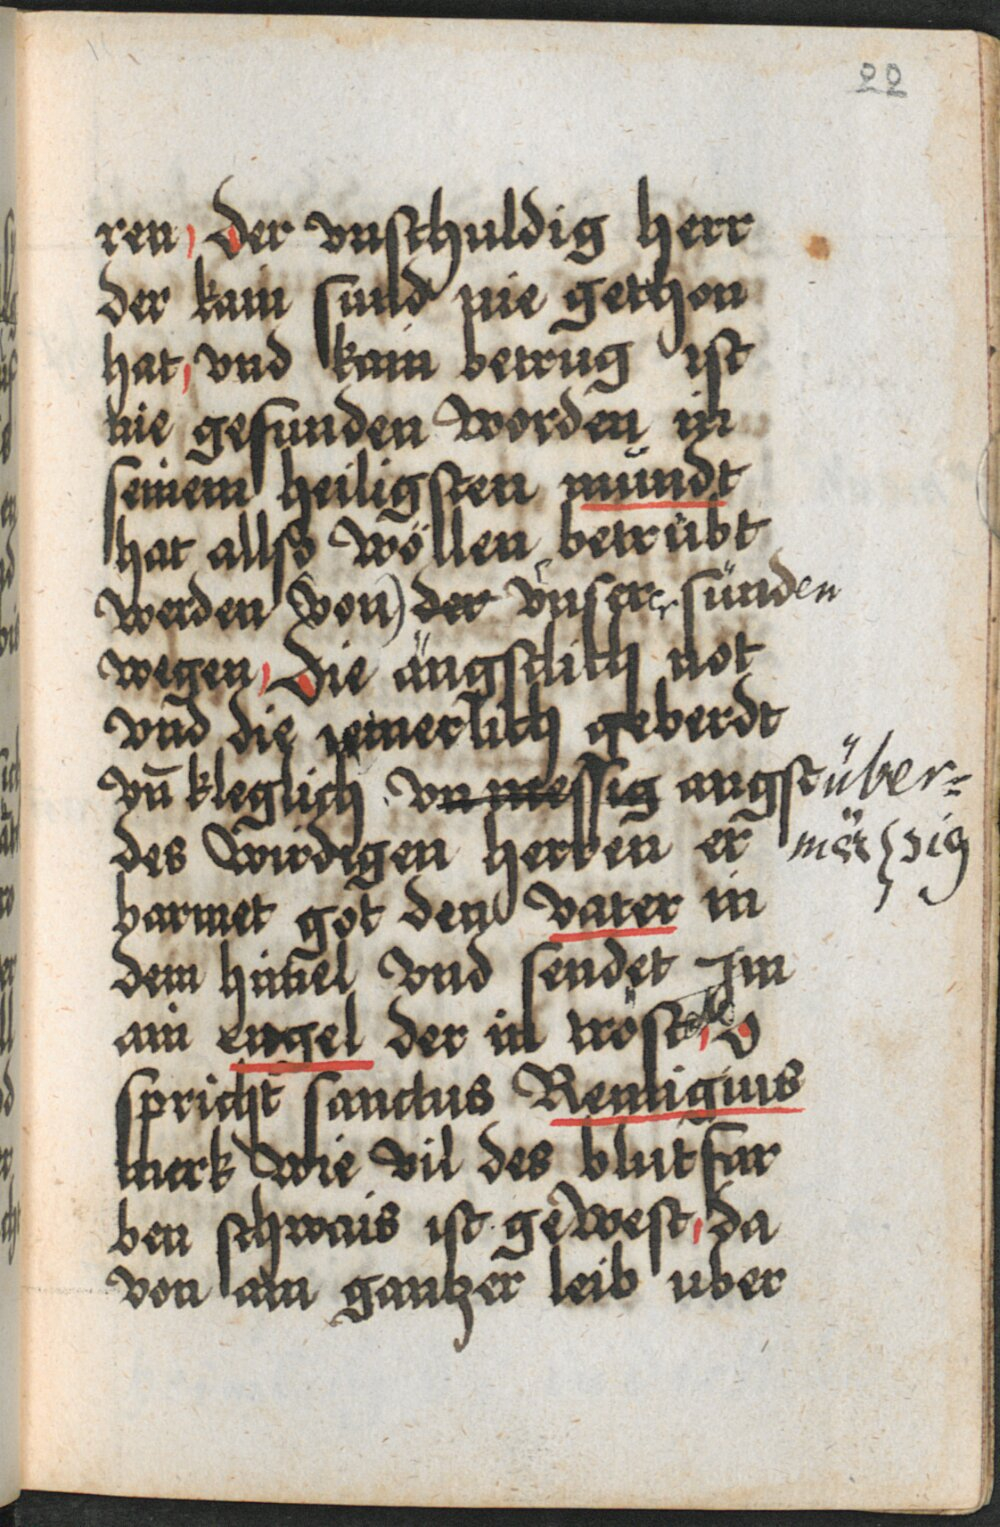 22
ren, Der vnschuldig herr
der kain sund nie gethon
hat, vnd kain betrug ist
nie gefunden worden in
seinem heiligsten mündt
hat allso wöllen betrübt
werden (von) der vnserer sünden
wegen, Die ängstlich not
vnd die jemerlich geberdt
vn̄ kleglich vn messig angst über-
des wirdigen herren er mäszig
barmet got den vater in
dem him̄el vnd sendet Im
ain engel der in tröst, O
spricht sanctus Remigius
merk wie vil des blutfar
ben schwais ist gewest, da
von ain gantzer leib uber